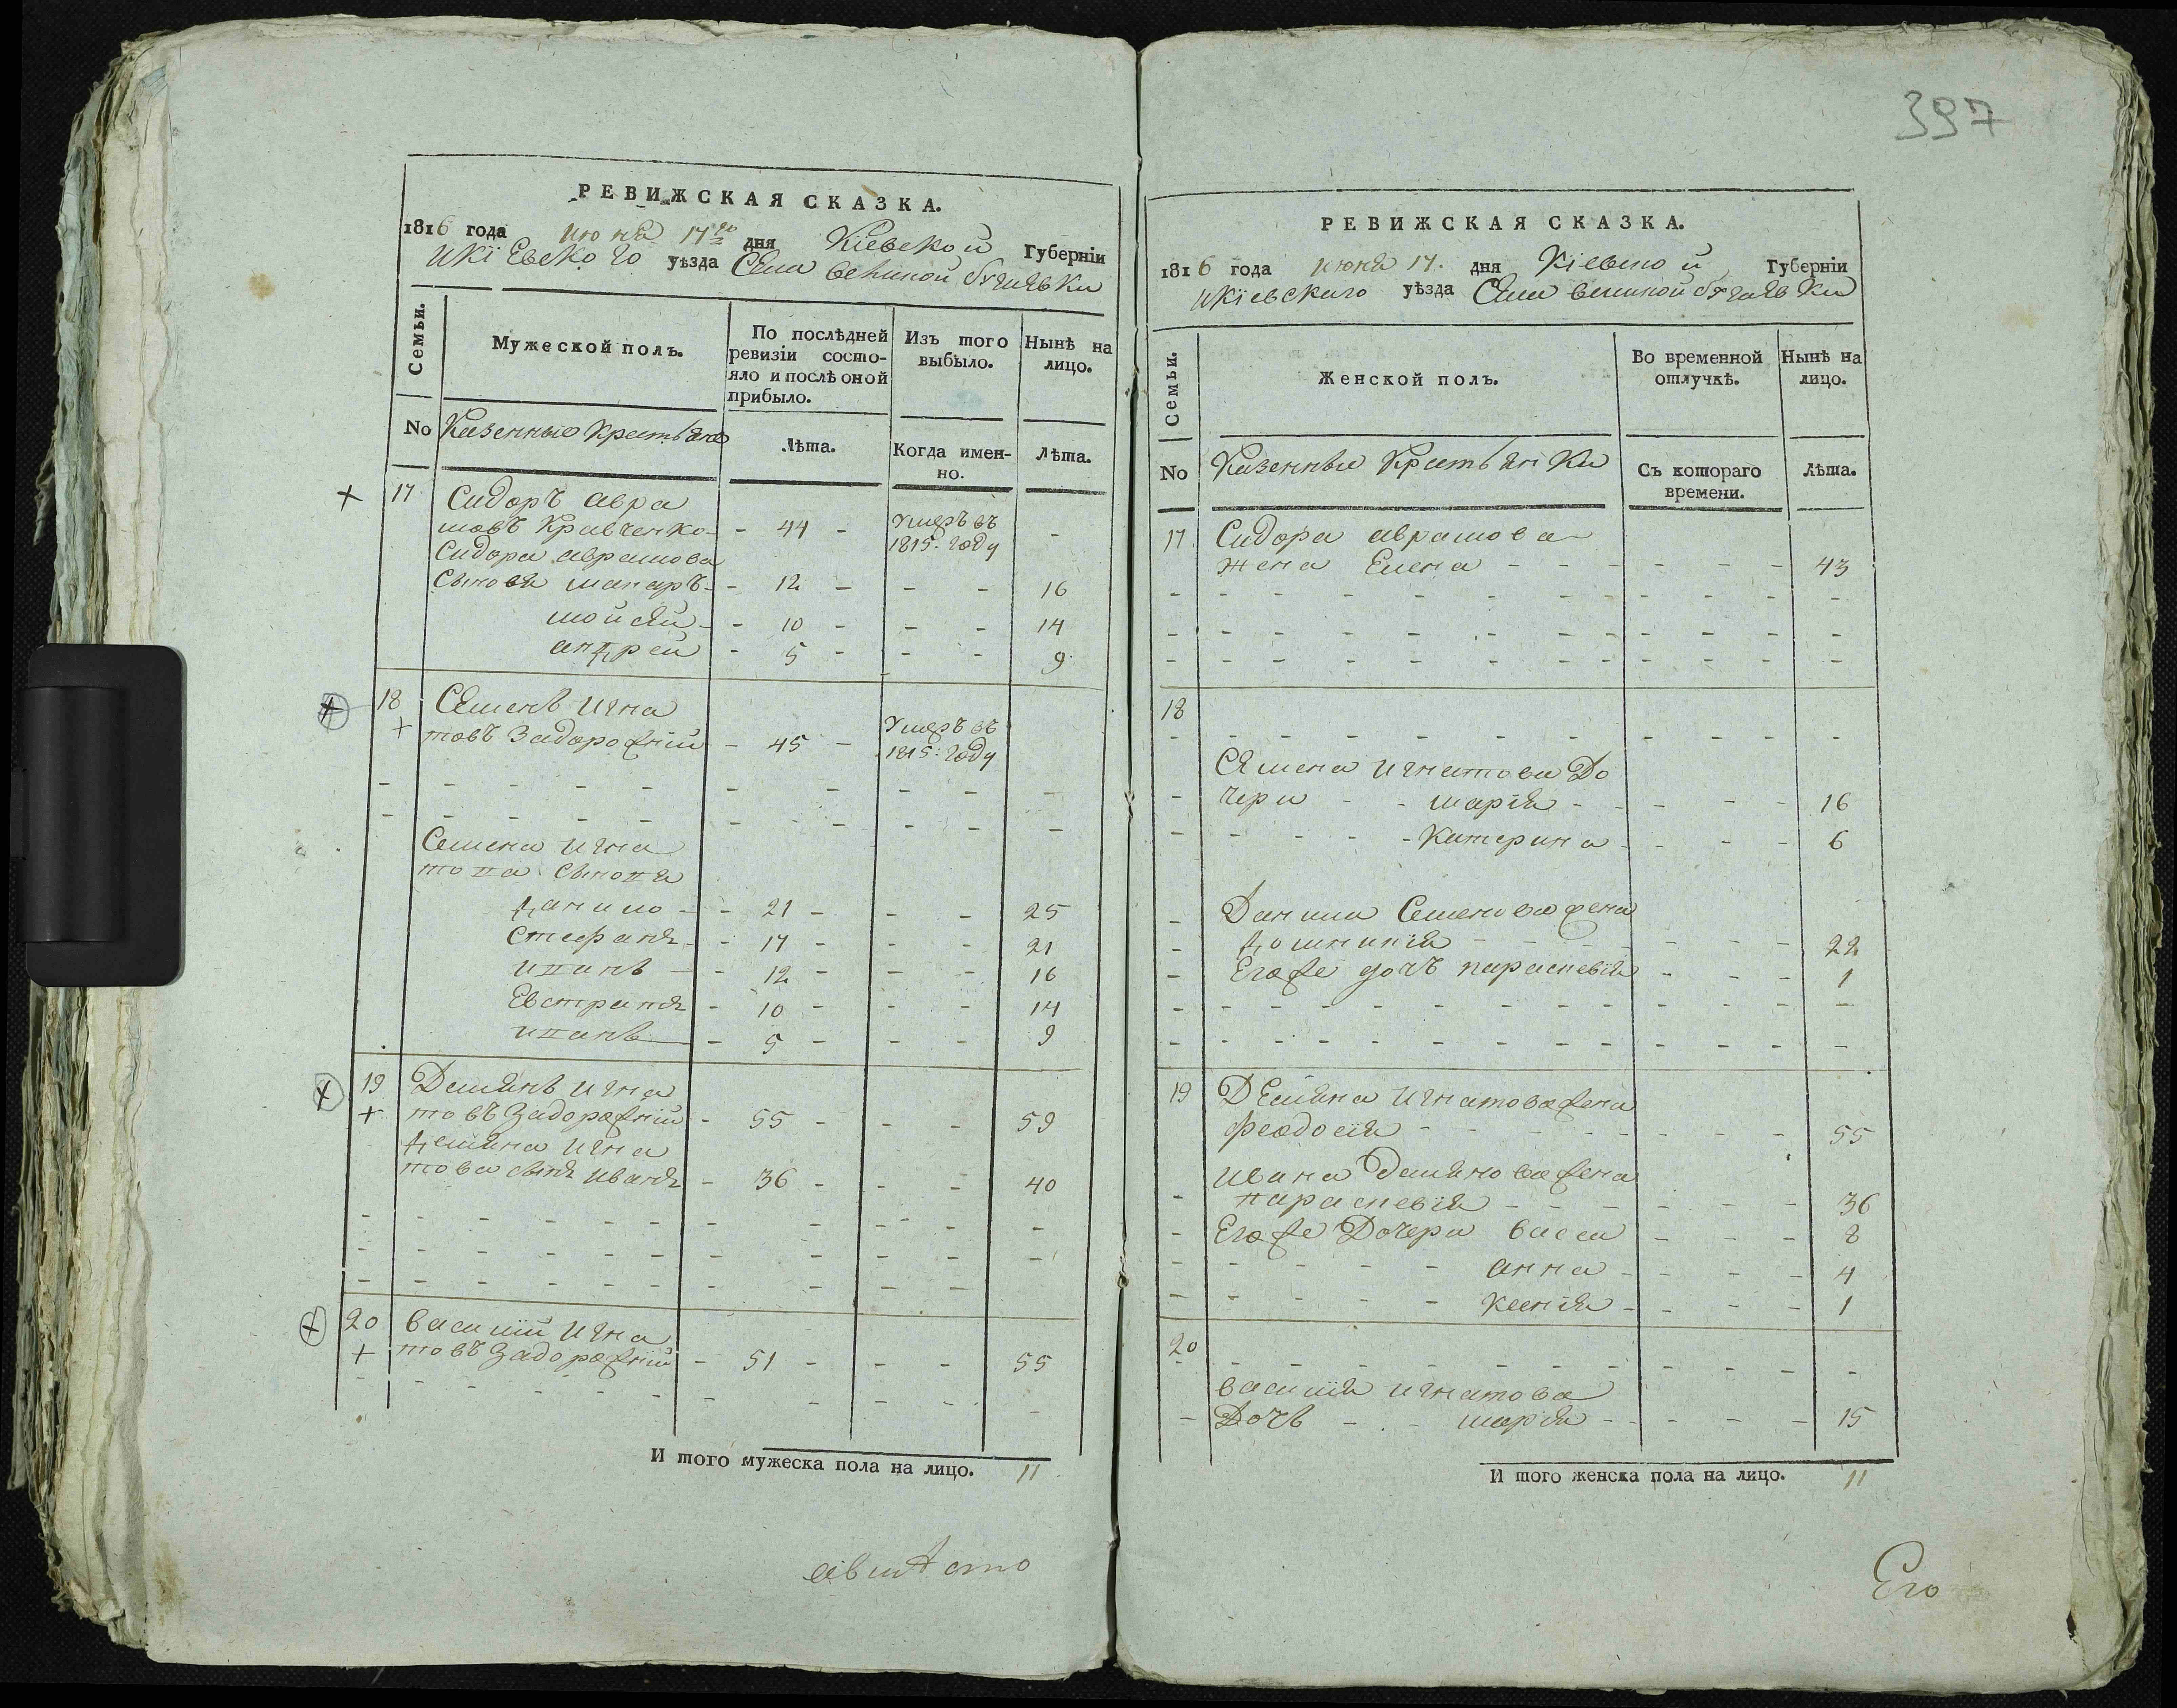 397
РЕВИЖСКАЯ СКАЗКА.
1816 года июня 17го дня Кіевской Губерніи
икіевского уѣзда Села великой
Семьи.
Мужеской полъ.
По послѣдней ревизіи состояло и послѣ оной прибыло.
Изъ того выбыло.
Нынѣ на лицо.
No Казенные Крестьяне
Лѣта.
Когда именно.
Лѣта.
17 Сидоръ авра
мовъ Кравченко - 44 - Умеръ въ 1815: году -
Сидора аврамова
сыновя макаръ - 12 - - - 16
мойсей - 10 - - - 14
андрей - 5 - - - 9
18 Семенъ игна
товъ Задорожній - 45 - Умеръ въ 1815: году
Семена игна
това сыновя
данило - 21 - - - 25
Стефанъ - 17 - - - 21
иванъ - 12 - - - 16
Евстратъ - 10 - - - 14
иванъ - 5 - - - 9
19 Демянъ игна
товъ Задорожній - 55 - - - 59
демяна игна
това сынъ иванъ - 36 - - - 40
20 василій игна
товъ Задорожній - 51 - - - 55
И того мужеска пола на лицо. 11
РЕВИЖСКАЯ СКАЗКА.
1816 года июня 17. дня Кіевской Губерніи
икіевского уѣзда Села великой
Семьи.
Женской полъ.
Во временной отлучкѣ.
Нынѣ на лицо.
No Казенные Крестьянки
Съ котораго времени.
Лѣта.
17 Сидора аврамова
жена Елена - - - 43
18
Семена игнатова До
чери - - марія - - - 16
Катерина - - - 6
Данила Семенова жена
домникія - - - 22
Егоже дочъ параскевія - - - 1
19 Демяна игнатова жена
феодосія - - - 55
ивана Демянова жена
параскевія - - - 36
Егоже Дочери васса - - - 8
анна - - - 4
ксенія - - - 1
20
василія игнатова
Дочь - - марія - - - 15
И того женска пола на лицо. 11
Его